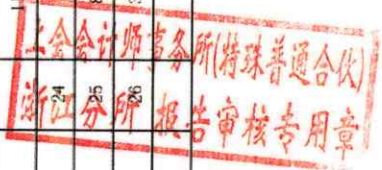 上会会计师事务所(特殊普通合伙)
浙江分所 报告审核专用章
24
25
26